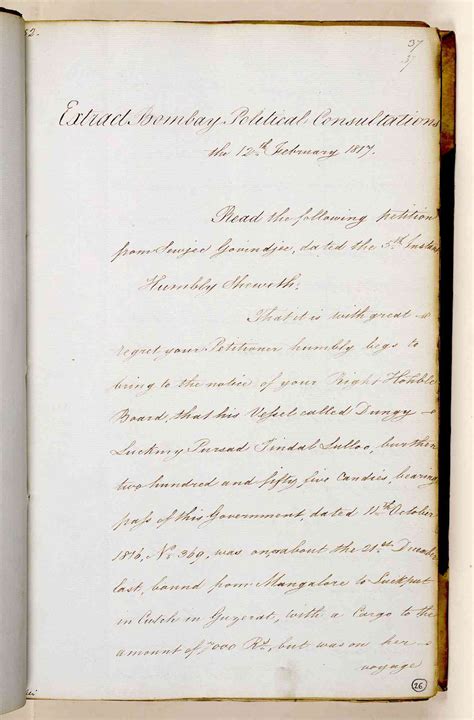 52.
37
37
Extract Bombay Political Consultations
the 12th February 1817.
Read the following petition
from Sewjee Govindjee, dated the 5th Instant
Humbly Sheweth.
That it is with great
regret your Petitioner humbly begs to
bring to the notice of your Right Honble
Board, that his Vessel called Dungy
Luckmy Pursad Tindal Lulloo, burthen
two hundred and fifty five Candies, bearing
pass of this Government, dated 14th October
1816, No. 369, was on or about the 21st December
last, bound from Mangalore to Luckput
in Cutch in Guzerat, with a Cargo to the
amount of 7000 Rs., but was on her
voyage
26